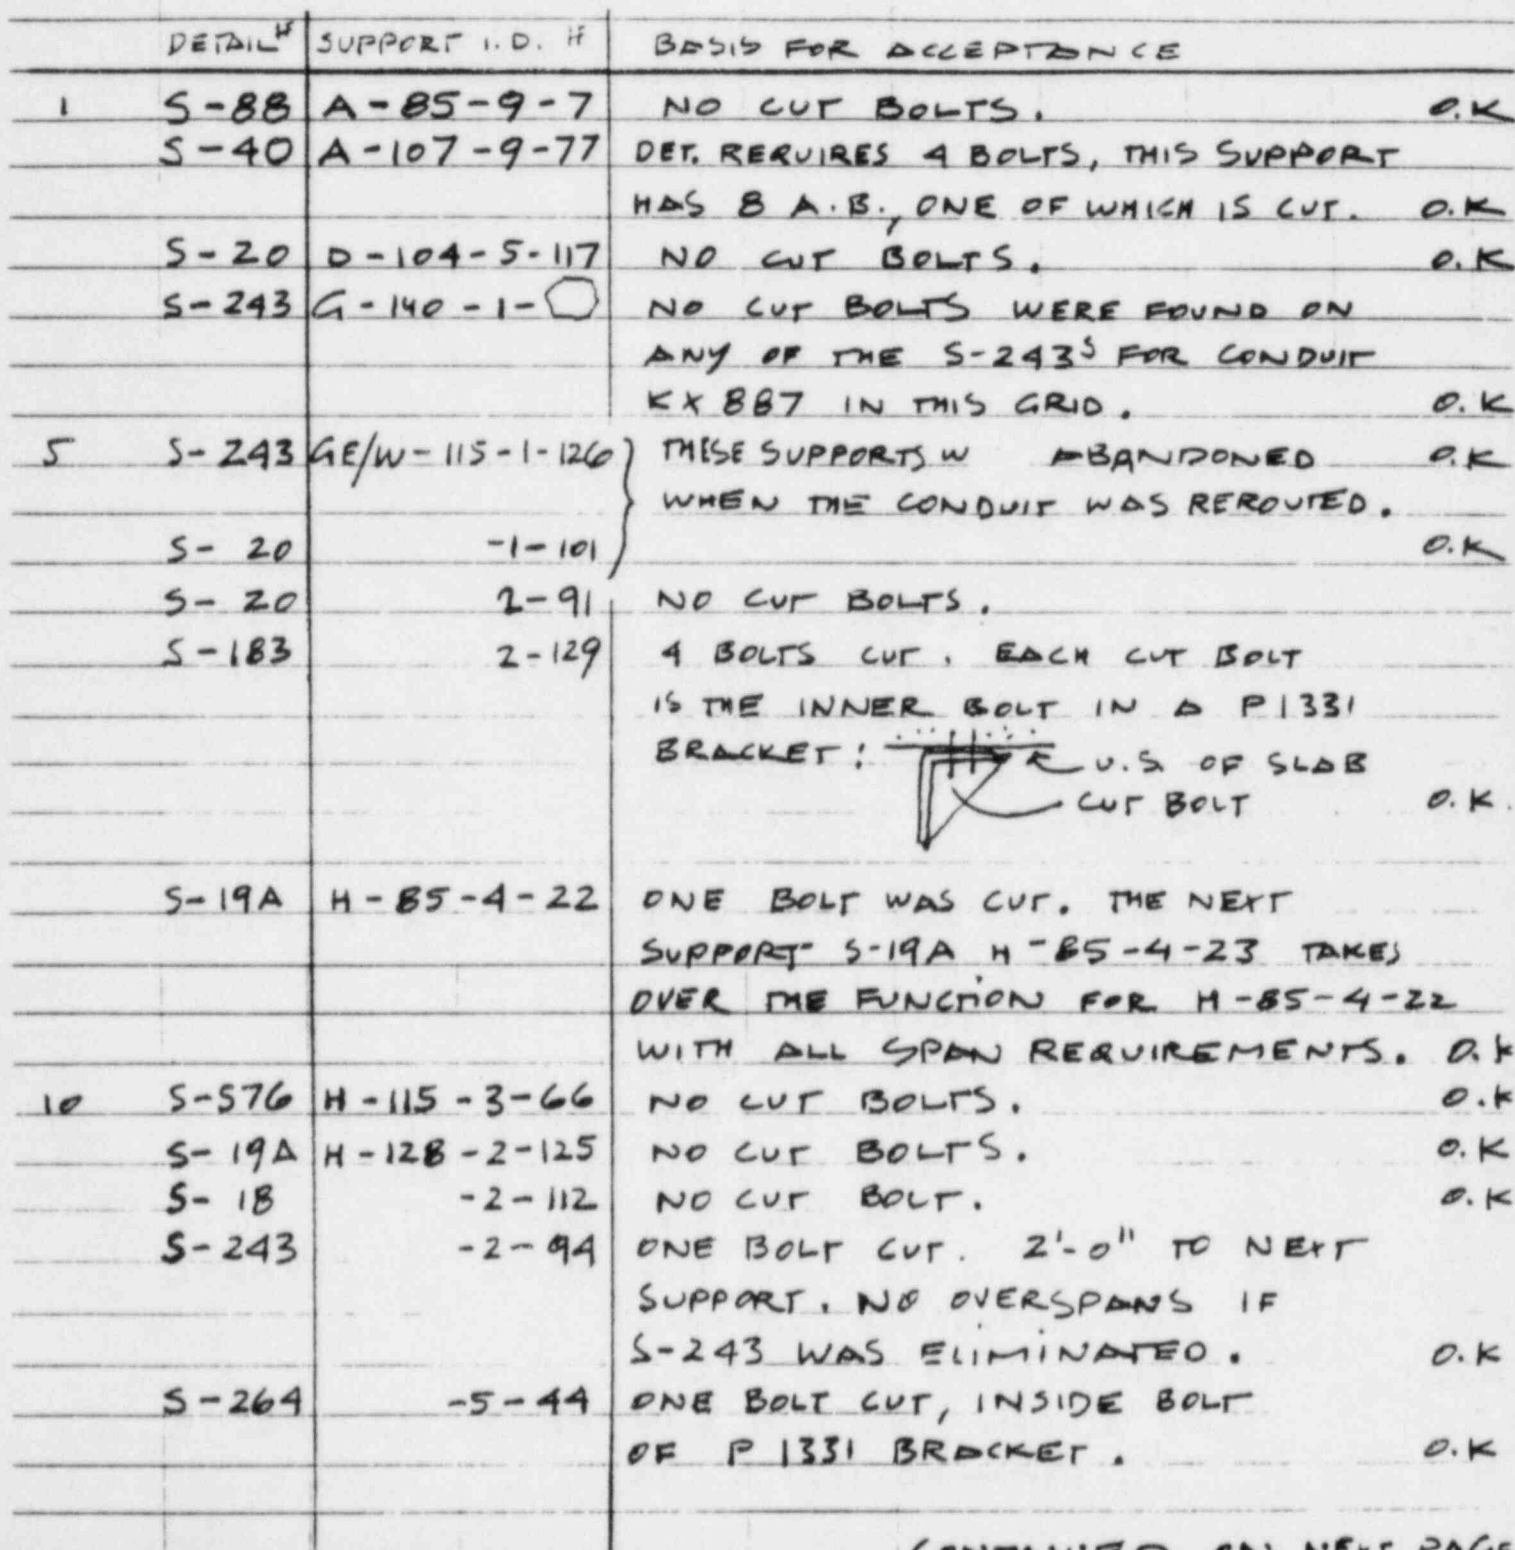 DETAIL # SUPPORT I.D. # BASIS FOR ACCEPTANCE
1 S-88 A-85-9-7 NO CUT BOLTS. O.K
S-40 A-107-9-77 DET. REQUIRES 4 BOLTS, THIS SUPPORT
HAS 8 A.B., ONE OF WHICH IS CUT. O.K
S-20 D-104-5-117 NO CUT BOLTS. O.K
S-243 G-140-1- NO CUT BOLTS WERE FOUND ON
ANY OF THE S-243S FOR CONDUIT
KX887 IN THIS GRID. O.K
5 S-243 GE/W-115-1-126 THESE SUPPORTS W ABANDONED O.K
WHEN THE CONDUIT WAS REROUTED.
S-20 -1-101 O.K
S-20 2-91 NO CUT BOLTS.
S-183 2-129 4 BOLTS CUT. EACH CUT BOLT
IS THE INNER BOLT IN A P1331
BRACKET: U.S. OF SLAB
CUT BOLT O.K.
S-19A H-85-4-22 ONE BOLT WAS CUT. THE NEXT
SUPPORT S-19A H-85-4-23 TAKES
OVER THE FUNCTION FOR H-85-4-22
WITH ALL SPAN REQUIREMENTS. O.K
10 S-576 H-115-3-66 NO CUT BOLTS. O.K
S-19A H-128-2-125 NO CUT BOLTS. O.K
S-18 -2-112 NO CUT BOLT. O.K
S-243 -2-94 ONE BOLT CUT. 2'-0" TO NEXT
SUPPORT. NO OVERSPANS IF
S-243 WAS ELIMINATED. O.K
S-264 -5-44 ONE BOLT CUT, INSIDE BOLT
OF P1331 BRACKET. O.K
CONTINUED ON NEXT PAGE